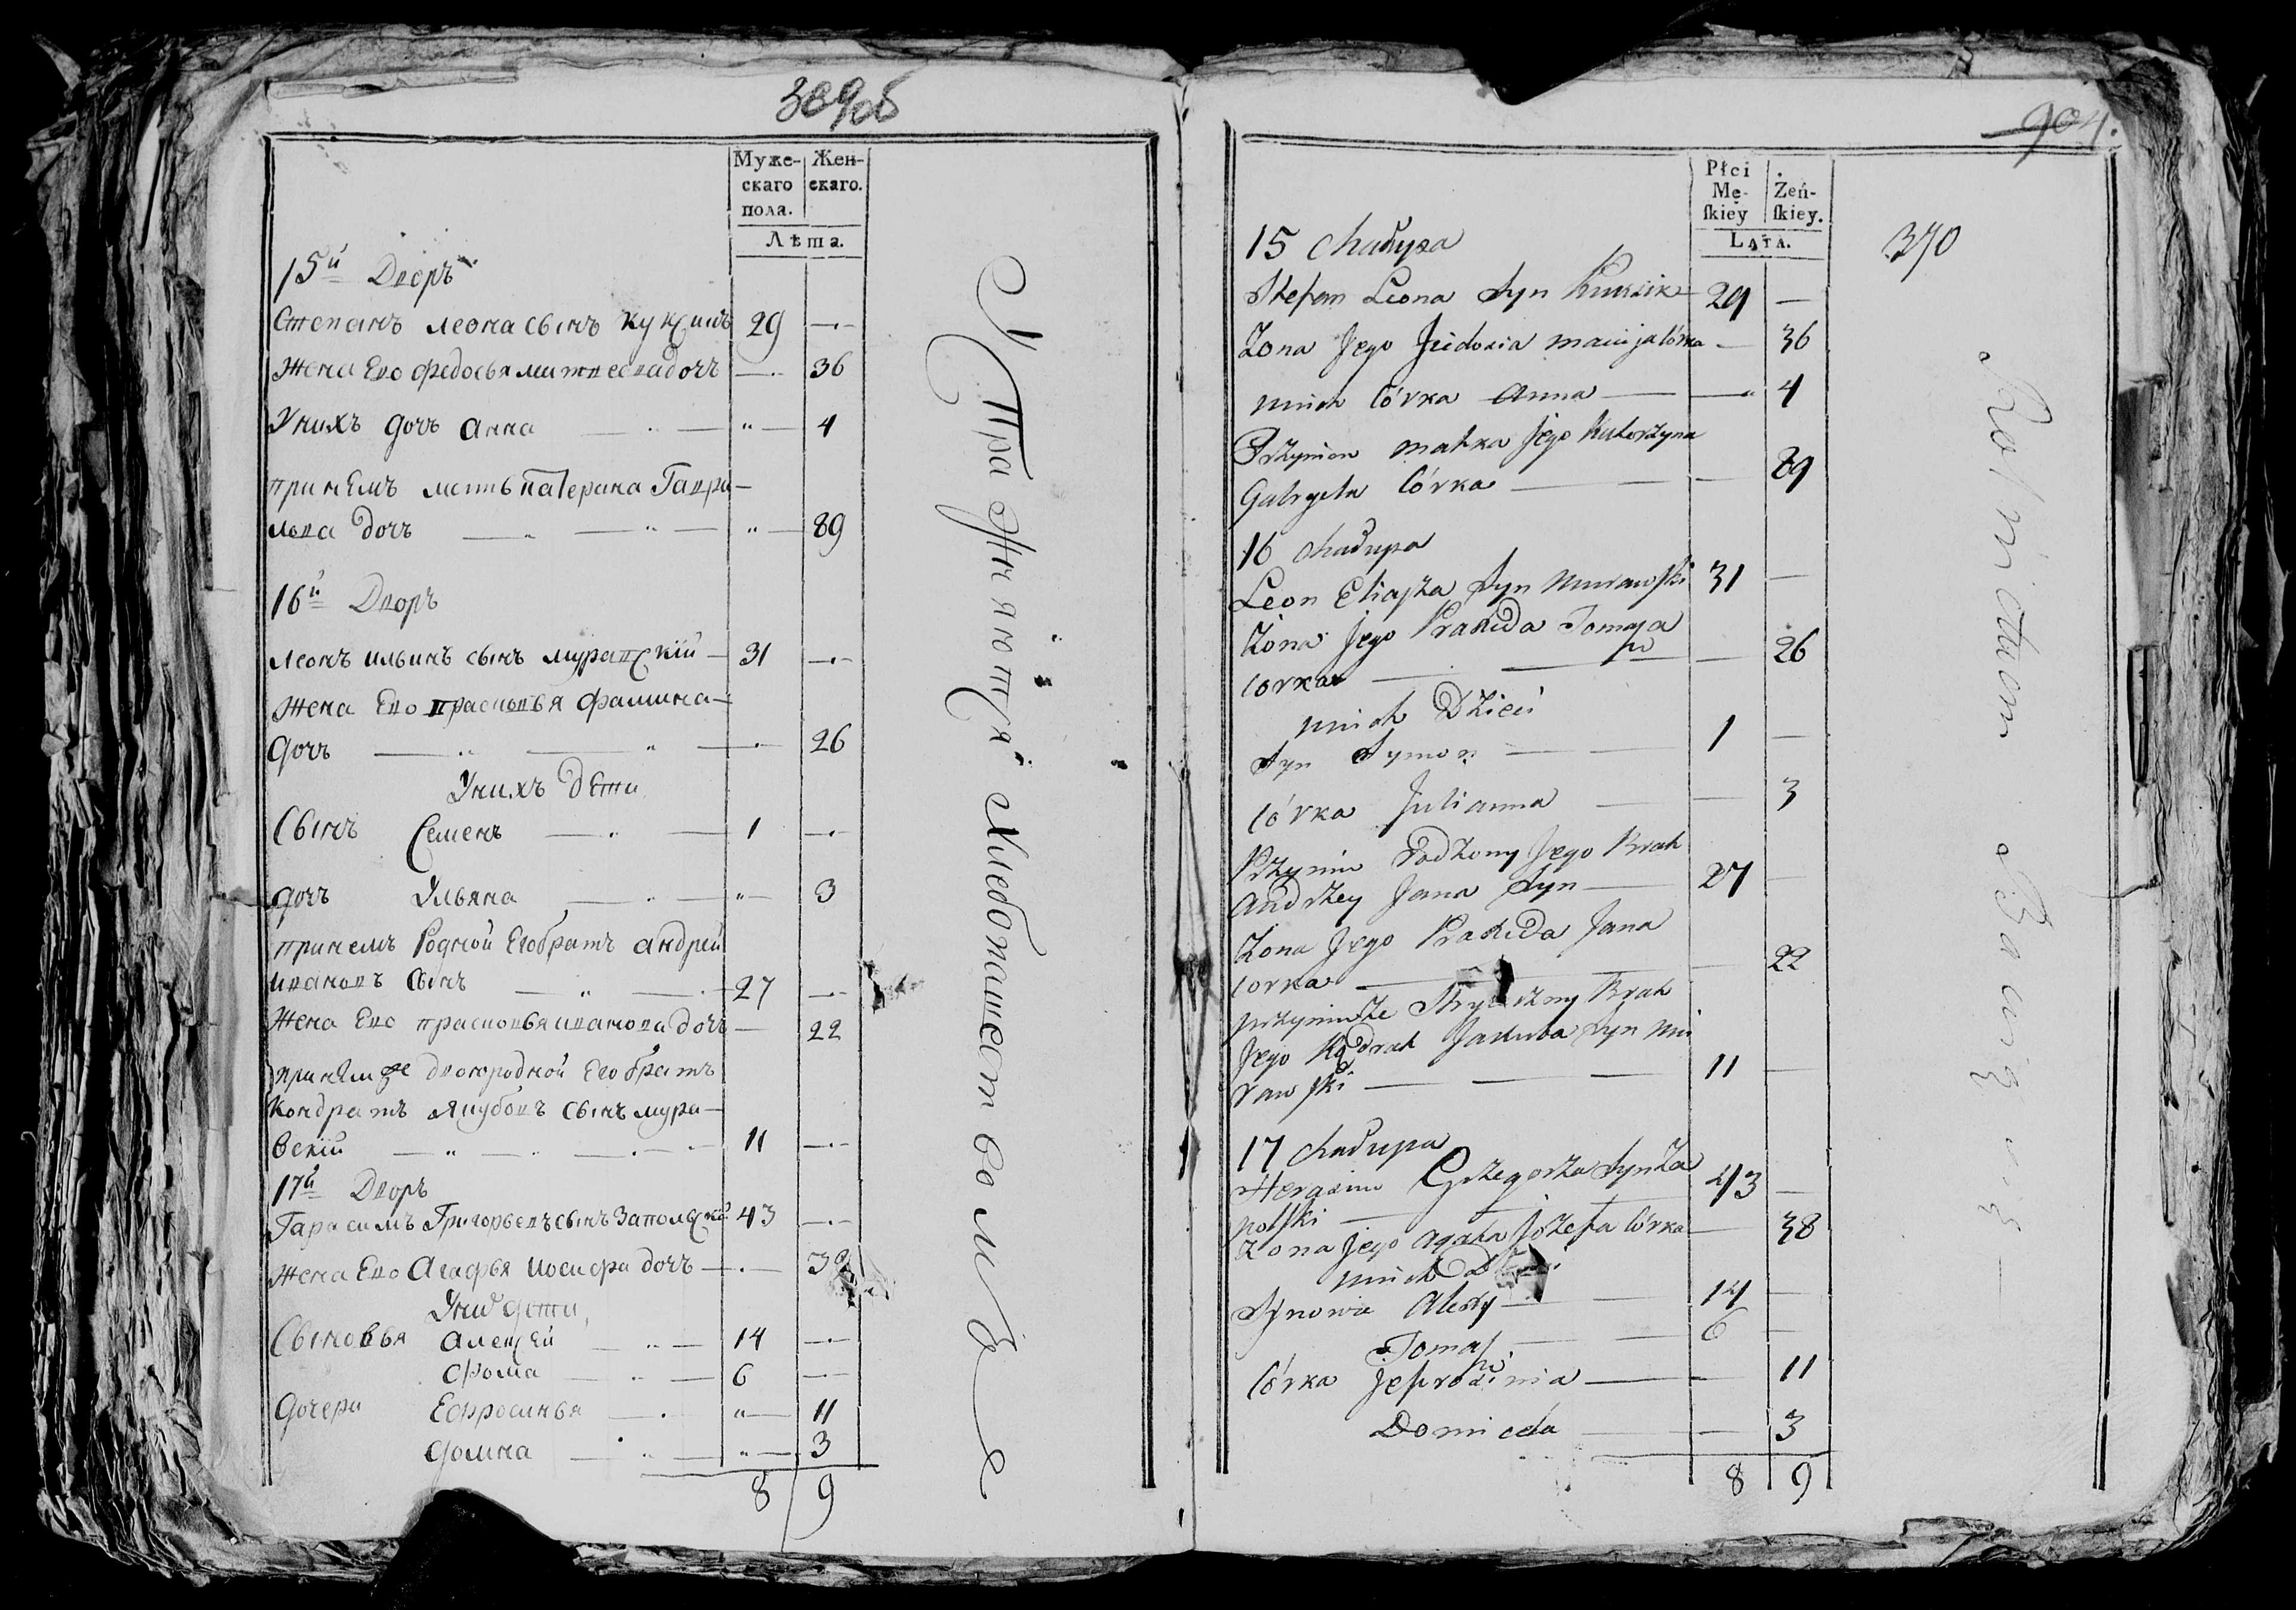 369об
Муже-
скаго
пола.
Жен-
скаго.
Лѣта.
15й Дворъ
Степанъ Леона сынъ Куксикъ 29 —
Жена Ево Федосья Матвеева дочъ — 36
Унихъ дочъ Анна — 4
принемъ мать Катерина Гаври-
льва дочъ — 89
16й Дворъ
Леонъ Ильинъ сынъ Муравскій 31 —
Жена Ево Прасковья Фамина-
дочъ — 26
Унихъ дети
Сынъ Семенъ 1 —
дочъ Ульяна — 3
принемъ Родной Егобратъ Андрей
Ивановъ сынъ 27 —
Жена Ево Прасковья Иванова дочъ — 22
принемже двоюродной Его братъ
Кондратъ Якубовъ сынъ Мура-
вскій 11 —
17й Дворъ
Гарасимъ Григорьевъ сынъ Запольской 43 —
Жена Ево Агафья Иосифа дочъ — 38
Уних дети
Сыновья Алексей 14 —
Фома 6 —
дочери Ефросинья — 11
домна — 3
8 9
Упражняются Хлебопашеством
904.
370
Płci
Mę-
ſkiey
Żeń-
ſkiey.
Lata.
15 Chałupa
Stefan Leona Syn Kuksik 29 —
Zona Jego Feidosia Maciija Córka — 36
unich Córka Anna — 4
Przyniem matka Jego Katerzyna
Gabryela Córka — 89
16 Chałupa
Leon Eliasza Syn Murawski 31 —
Zona Jego Praxeda Tomasza
Corka — 26
unich Dzieci
Syn Symon 1 —
Córka Julianna — 3
Przynim Rodzony Jego Brat
Andrzey Jana Syn 27 —
Zona Jego Praxeda Jana
Corka — 22
przynimże Stryieczny Brat
Jego Kądrat Jakuba Syn Mu
rawski 11 —
17 Chałupa
Herasim Grzegorza Syn Za
polski 43 —
Zona Jego Agata Jozefa Córka — 38
unich Dzieci
Synowie Alexy 14 —
Tomasz 6 —
Córka Jefrozinia — 11
Domicela — 3
8 9
Rolnictwem Bawią się